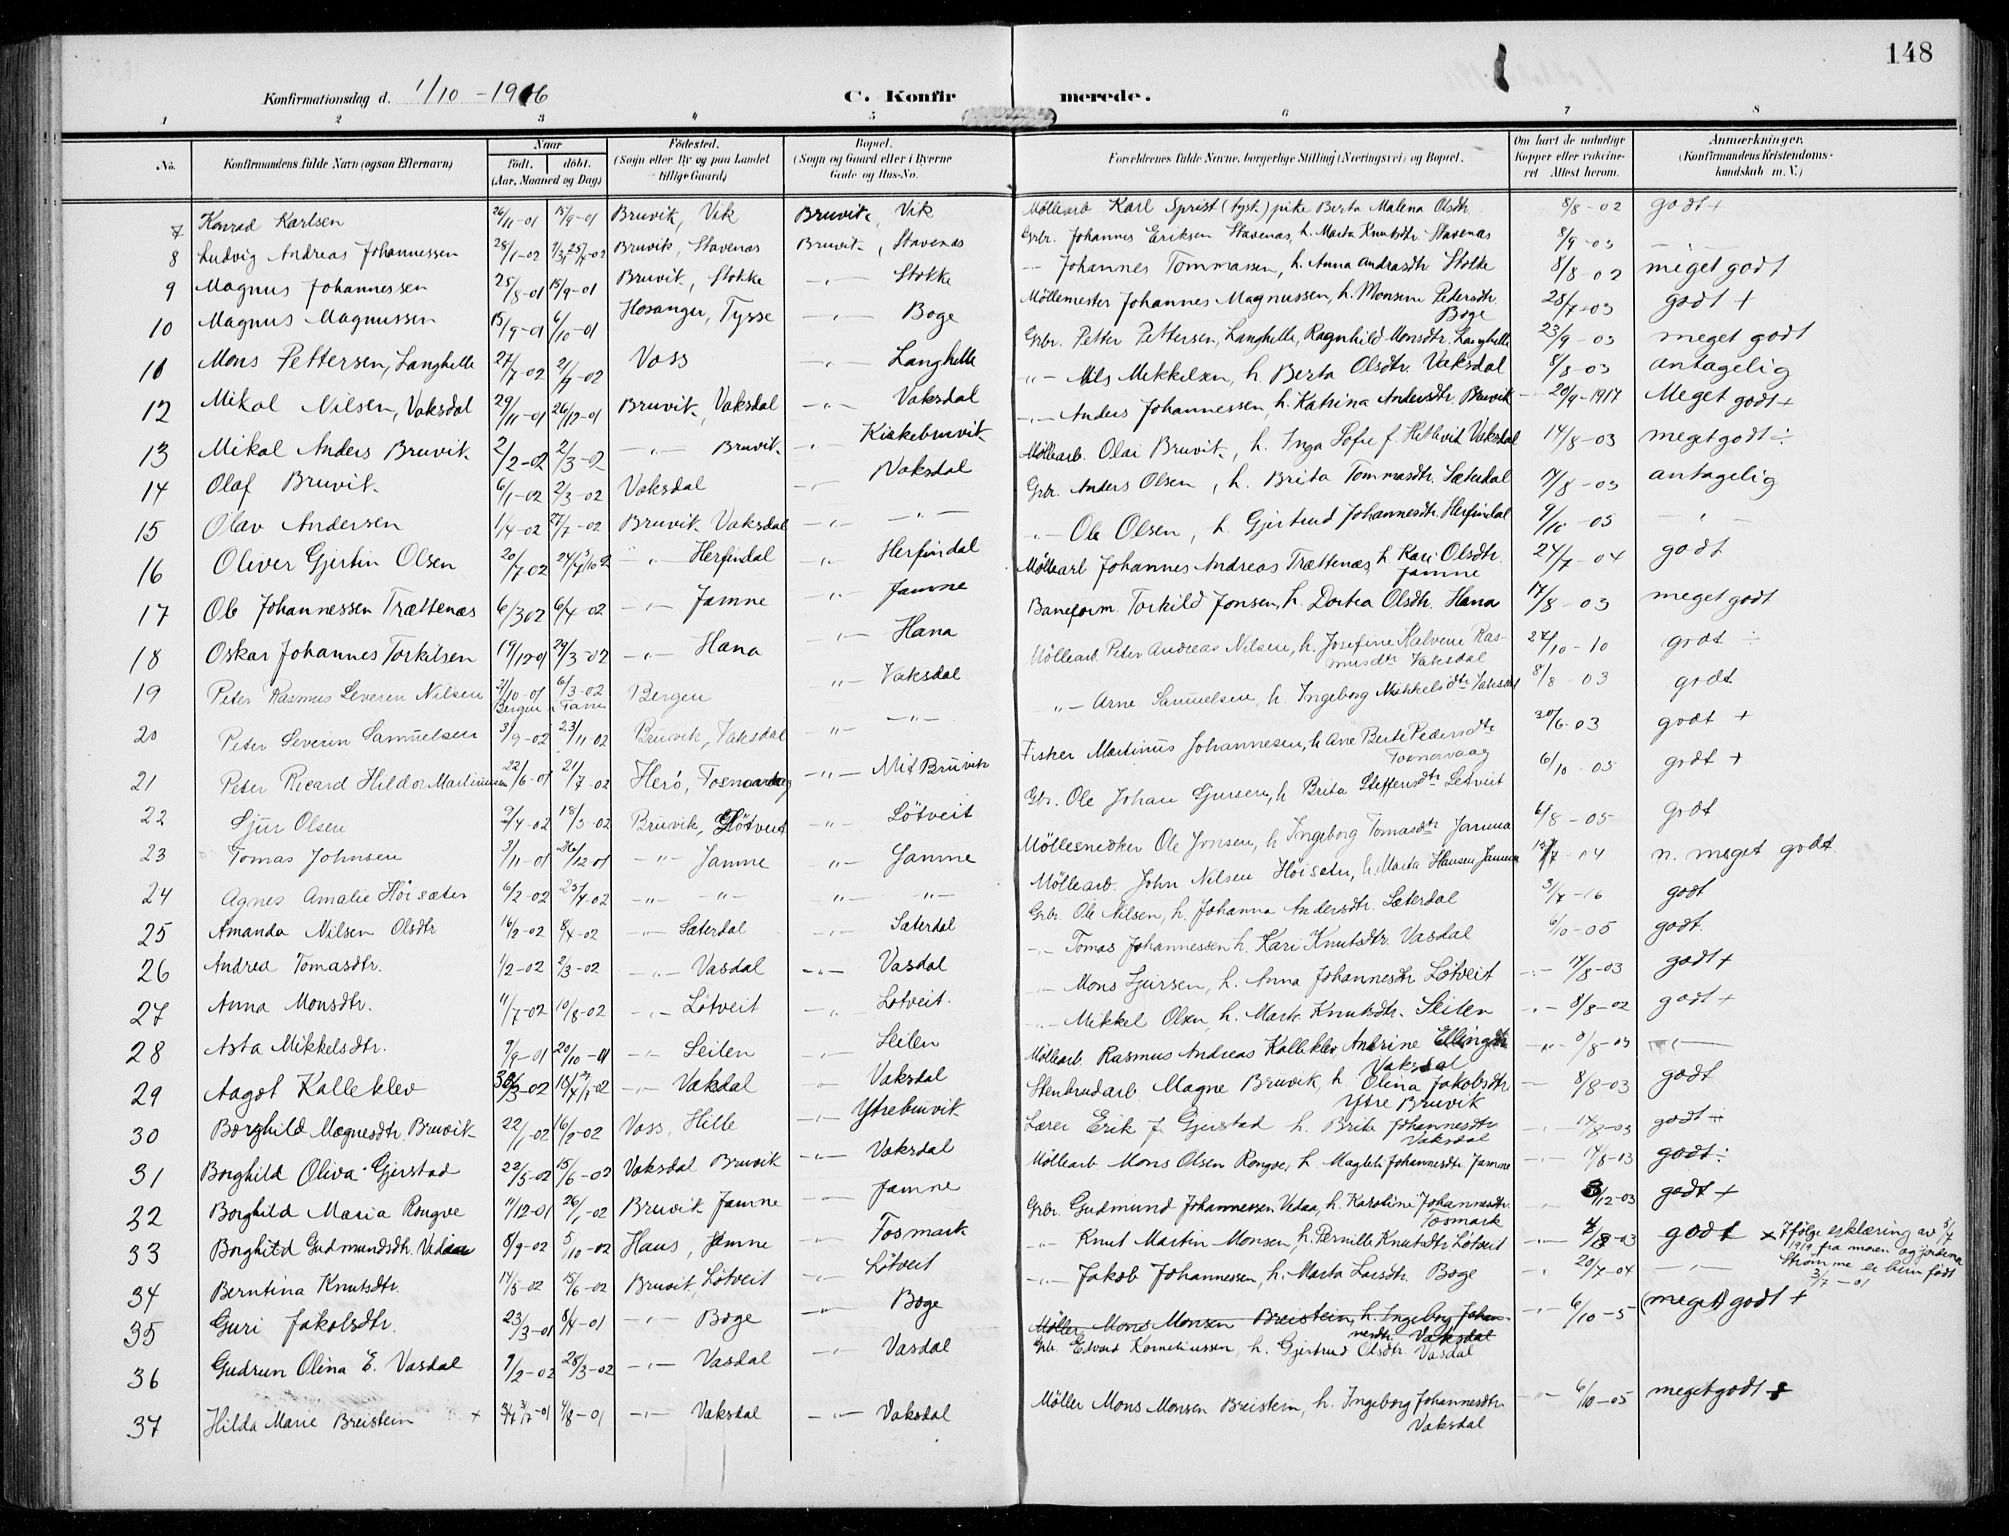 148
Konfirmationsdag d. 1/10 - 1916 C. Konfirmerede.
1 2 3 4 5 6 7 8
No. Konfirmandens fulde Navn (ogsaa Efternavn) Naar født. døbt. (Aar, Maaned og Dag) Fødested. (Sogn eller By og paa Landet tillige Gaard) Bopæl. (Sogn og Gaard eller i Byerne Gade og Hus-No. Forældrenes fulde Navne, borgerlige Stilling (Næringsvei) og Bopæl. Om havt de naturlige Kopper eller vakcineret Attest herom. Anmærkninger. (Konfirmandens Kristendomskundskab m. V.)
7 Konrad Karlsen 26/11-01 15/9-01 Bruvik, Vik Bruvik, Vik Möllearb Karl Sprist (tysk) pike Berta Malena Olsdtr. 8/8-02 godt +
8 Ludvig Andreas Johannessen 28/1-02 Bruvik, Stavenes Bruvik, Stavenes Grbr. Johannes Eriksen Stavenas, h. Marta Knutsdtr. Stavenas 8/9-03 -"-
9 Magnus Johannessen 25/8-01 15/9-01 Bruvik, Stokke -"- Stokke -- Johannes Tommassen, h. Anna Andrasdtr Stokke 8/8-02 meget godt
10 Magnus Magnussen 15/9-01 6/10-01 Hosanger, Tysse -"- Boge Möllemester Johannes Magnussen, h. Monsine Pedersdtr. Boge 28/7-03 godt +
11 Mons Pettersen, Langhelle 27/7-02 2/9-02 Voss -"- Langhelle Grbr. Petter Pettersen, Langhelle, Ragnhild Monsdtr. Langhelle 23/9-03 meget godt
12 Mikal Nilsen, Vaksdal 29/11-01 26/12-01 Bruvik, Vaksdal -"- Vaksdal "- Nils Mekkelsen, h Berta Olsdtr. Vaksdal 8/8-03 antagelig
13 Mikal Anders Bruvik 2/2-02 2/3-02 -"- Bruvik -"- Kirkebruvik -"- Anders Johannessen, h. Katrina Andersdtr. Bruvik - 20/9-1917 Meget godt +
14 Olaf Bruvik 6/1-02 2/3-02 Vaksdal -"- Vaksdal Möllearb. Olai Bruvik, h. Inga Sofie f. Hetlevik Vaksdal 14/8-03 meget godt ÷
15 Olav Andersen 1/4-02 27/7-02 Bruvik Vaksdal -"- -"- Grbr. Anders Olsen, h. Brita Tommasdtr. Sæterdal 14/8-03 antagelig
16 Oliver Gjertin Olsen 20/7 02 -"- Herfindal -"- Herfindal "- Ole Olsen, h. Gjertrud Johannesdtr. Herfindal 9/10-05 -"-
17 Ole Johannessen Trættenæs 6/3 02 6/4-02 -"- Jamne -"- Jamne Möllearb Johannes Andreas Trættenæs, h Kari Olsdtr. Jamne 27/7-04 godt
18 Oskar Johannes Torkilsen 19/12-01 29/3-02 -"- Hana -"- Hana Baneform. Torkild Jonsen, h. Dortea Olsdtr. Hana 17/8-03 meget godt
19 Peter Rasmus Severin Nilsen 21/10-01 6/3-02 Bergen Bergen -"- Vaksdal Möllearb. Peter Andreas Nilsen, h. Josefine Kalvene Rasmusdtr Vaksdal 27/10-10 godt ÷
20 Peter Severin Samuelsen 3/9-02 23/11-02 Bruvik, Vaksdal -"- -"- "- Arne Samuelsen, h. Ingeborg Mikkelsdtr Vaksdal 8/8-03 godt
21 Peter Ricard Hildor Martinussen 22/6-01 21/7-02 Herö, Tosnavaag -"- Mit Bruvik Fisker Martinus Johannesen, h. Ane Berte Pedersdtr Tosnavaag 30/6-03 godt +
22 Sjur Olsen 2/4-02 18/5-02 Bruvik, Lötveit -"- Lötveit Gbr. Ole Johan Sjursen, h Brita Steffensdtr Lötveit 6/10-05 godt +
23 Tomas Johnsen 3/11-01 26/12-01 -"- Jamne -"- Jamne Möllesnedker Ole Jonsen, h Ingeborg Tomasdtr Jamna 6/8-05 godt
24 Agnes Amalie Höisæter 6/2-02 25/4-02 -"- -"- -"- -"- Möllearb. John Nilsen Höisæter, h. Marta Hansen Jamna 15/7-04 n. meget godt.
25 Amanda Nilsen Olsdtr 16/2-02 8/4-02 -"- Sæterdal -"- Sæterdal Grbr. Ole Nilsen, h. Johanna Andersdtr. Sæterdal 3/7-16 godt
26 Andrea Tomasdtr. 1/2-02 2/3-02 -"- Vasdal -"- Vasdal -"- Tomas Johannessen h. Kari Knutsdtr. Vasdal 6/10-05 godt.
27 Anna Monsdtr. 11/7-02 10/8-02 -"- Lötveit -"- Lötveit -"- Mons Sjursen, h. Anna Johannesdtr Lötveit -"- 14/8-03 godt +
28 Asta Mikkelsdtr. 9/9-01 20/10-01 -"- Seilen -"- Seilen -"- Mikkel Olsen, h. Marte Knutsdtr. Seilen -"- 8/8-02 godt +
29 Aagot Kalleklev -"- Vaksdal " Vaksdal Möllearb. Rasmus Andreas Kalleklev Andrine Ellingsdtr Vaksdal -"- 8/8-03 -"-
30 Borghild Magnesdtr. Bruvik 22/1-02 16/2-02 Voss, Hille -"- Ytrebruvik Stenbrudarb. Magne Bruvik, h. Olina Jakobsdtr. Ytre Bruvik - 8/8-03 godt
31 Borghild Oliva Gjerstad 22/5-02 15/6-02 Vaksdal Bruvik -"- Vaksdal Lærer Erik J. Gjerstad h. Brita Johannesdtr Vaksdal -"- 14/8-03 godt ÷
32 Borghild Maria Rongve 11/12-01 26/1-02 Bruvik Jamne -"- Jamne Möllearb Mons Olsen Rongve, h. Magteli Johannesdtr Jamne -"- 14/8-03 godt ÷
33 Borghild Gudmundsdtr. Vedaa 8/9-02 5/10-02 Haus, Jamne -"- Fosmark Grbr. Gudmund Johannessen Vedaa, h. Karoline Johannesdtr. Fosmark 5/12-03 godt +
34 Berntina Knutsdtr. 14/5-02 15/6-02 Bruvik, Lötveit -"- Lötveit -"- Knut Martin Monsen, h. Pernille Knutsdtr Lötveit -"- godt
x Ifölge erklæring av 5/7 1919 fra moren og jordema Strömme er hun født 3/7-01
35 Guri Jakobsdtr. 23/3-01 8/4-01 -"- Boge -"- Boge -"- Jakob Johannessen, h. Marta Larsdtr. Boge -"- 20/7-04 -"-
36 Gudrun Olina E. Vasdal 9/2-02 28/3-02 -"- Vasdal -"- Vasdal Möller Mons Monsen Breistein, h. Ingeborg Johannesdtr. Vaksdal Grb. Edvard Korneliussen, h. Gjertrud Olsdtr. Vasdal -"- 6/10-5 (meget) godt +
37 Hilda Marie Breistein + 4/8-01 -"- Vaksdal -"- Vaksdal Möller Mons Monsen Breistein, h. Ingeborg Johannesdtr. Vaksdal -"- 6/10-05 meget godt +